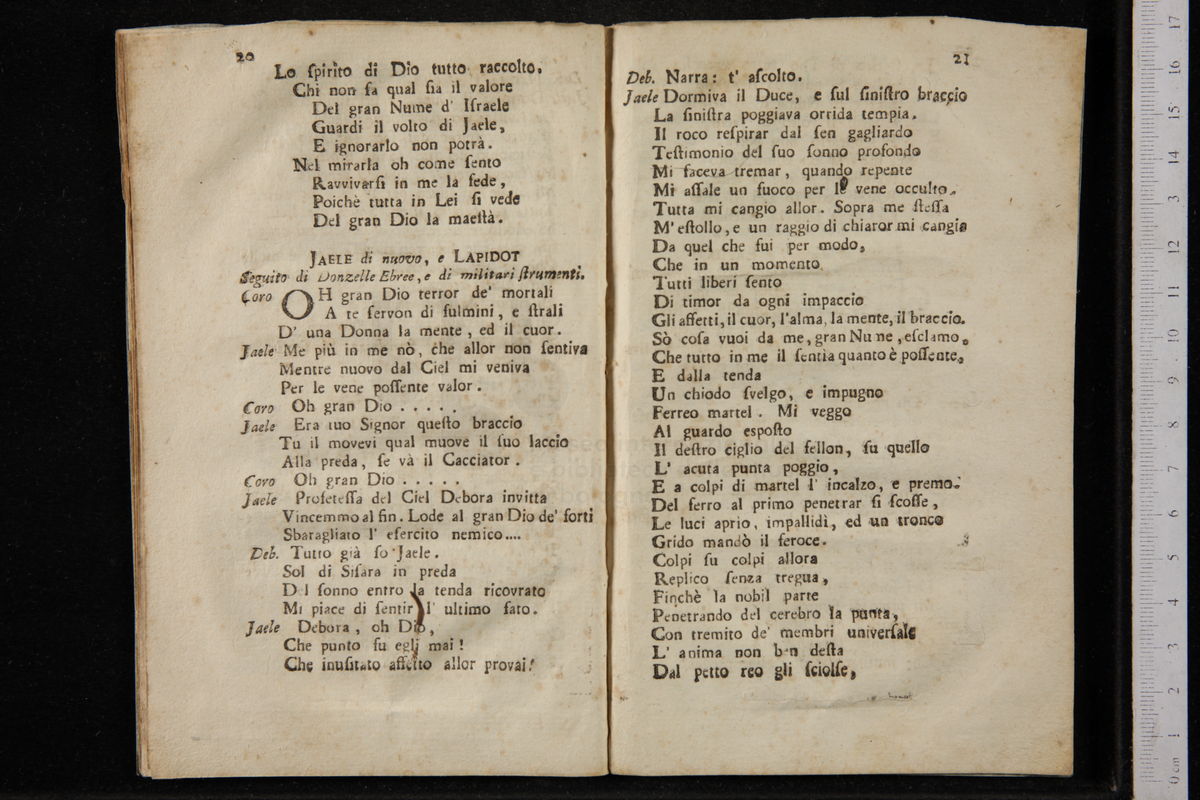 20
Lo ſpirito di Dio tutto raccolto.
Chi non ſa qual ſia il valore
Del gran Nume d' Iſraele
Guardi il volto di Jaele,
E ignorarlo non potrà.
Nel mirarla oh come ſento
Ravvivarſi in me la fede,
Poichè tutta in Lei ſi vede
Del gran Dio la maeſtà.
JAELE di nuovo, e LAPIDOT
Seguito di Donzelle Ebree, e di militari ſtrumenti.
Coro OH gran Dio terror de' mortali
A te ſervon di fulmini, e ſtrali
D' una Donna la mente, ed il cuor.
Jaele Me più in me nò, che allor non ſentiva
Mentre nuovo dal Ciel mi veniva
Per le vene poſſente valor.
Coro Oh gran Dio . . . . .
Jaele Era tuo Signor queſto braccio
Tu il movevi qual muove il ſuo laccio
Alla preda, ſe và il Cacciator.
Coro Oh gran Dio . . . . .
Jaele Profeteſſa del Ciel Debora invitta
Vincemmo al fin. Lode al gran Dio de' forti
Sbaragliato l' eſercito nemico....
Deb. Tutto già ſo Jaele.
Sol di Siſara in preda
Del ſonno entro la tenda ricovrato
Mi piace di ſentir l' ultimo fato.
Jaele Debora, oh Dio,
Che punto fu egli mai!
Che inuſitato affetto allor provai!
21
Deb. Narra: t' aſcolto.
Jaele Dormiva il Duce, e ſul ſiniſtro braccio
La ſiniſtra poggiava orrida tempia.
Il roco reſpirar dal ſen gagliardo
Teſtimonio del ſuo ſonno profondo
Mi faceva tremar, quando repente
Mi aſſale un fuoco per le vene occulto.
Tutta mi cangio allor. Sopra me ſteſſa
M' eſtollo, e un raggio di chiaror mi cangia
Da quel che fui per modo,
Che in un momento
Tutti liberi ſento
Di timor da ogni impaccio
Gli affetti, il cuor, l'alma, la mente, il braccio.
Sò coſa vuoi da me, gran Nume, eſclamo.
Che tutto in me il ſentia quanto è poſſente.
E dalla tenda
Un chiodo ſvelgo, e impugno
Ferreo martel. Mi veggo
Al guardo eſpoſto
Il deſtro ciglio del fellon, ſu quello
L' acuta punta poggio,
E a colpi di martel l' incalzo, e premo.
Del ferro al primo penetrar ſi ſcoſſe,
Le luci aprio, impallidì, ed un tronco
Grido mandò il feroce.
Colpi ſu colpi allora
Replico ſenza tregua,
Finchè la nobil parte
Penetrando del cerebro la punta,
Con tremito de' membri univerſale
L' anima non ben deſta
Dal petto reo gli ſciolſe,